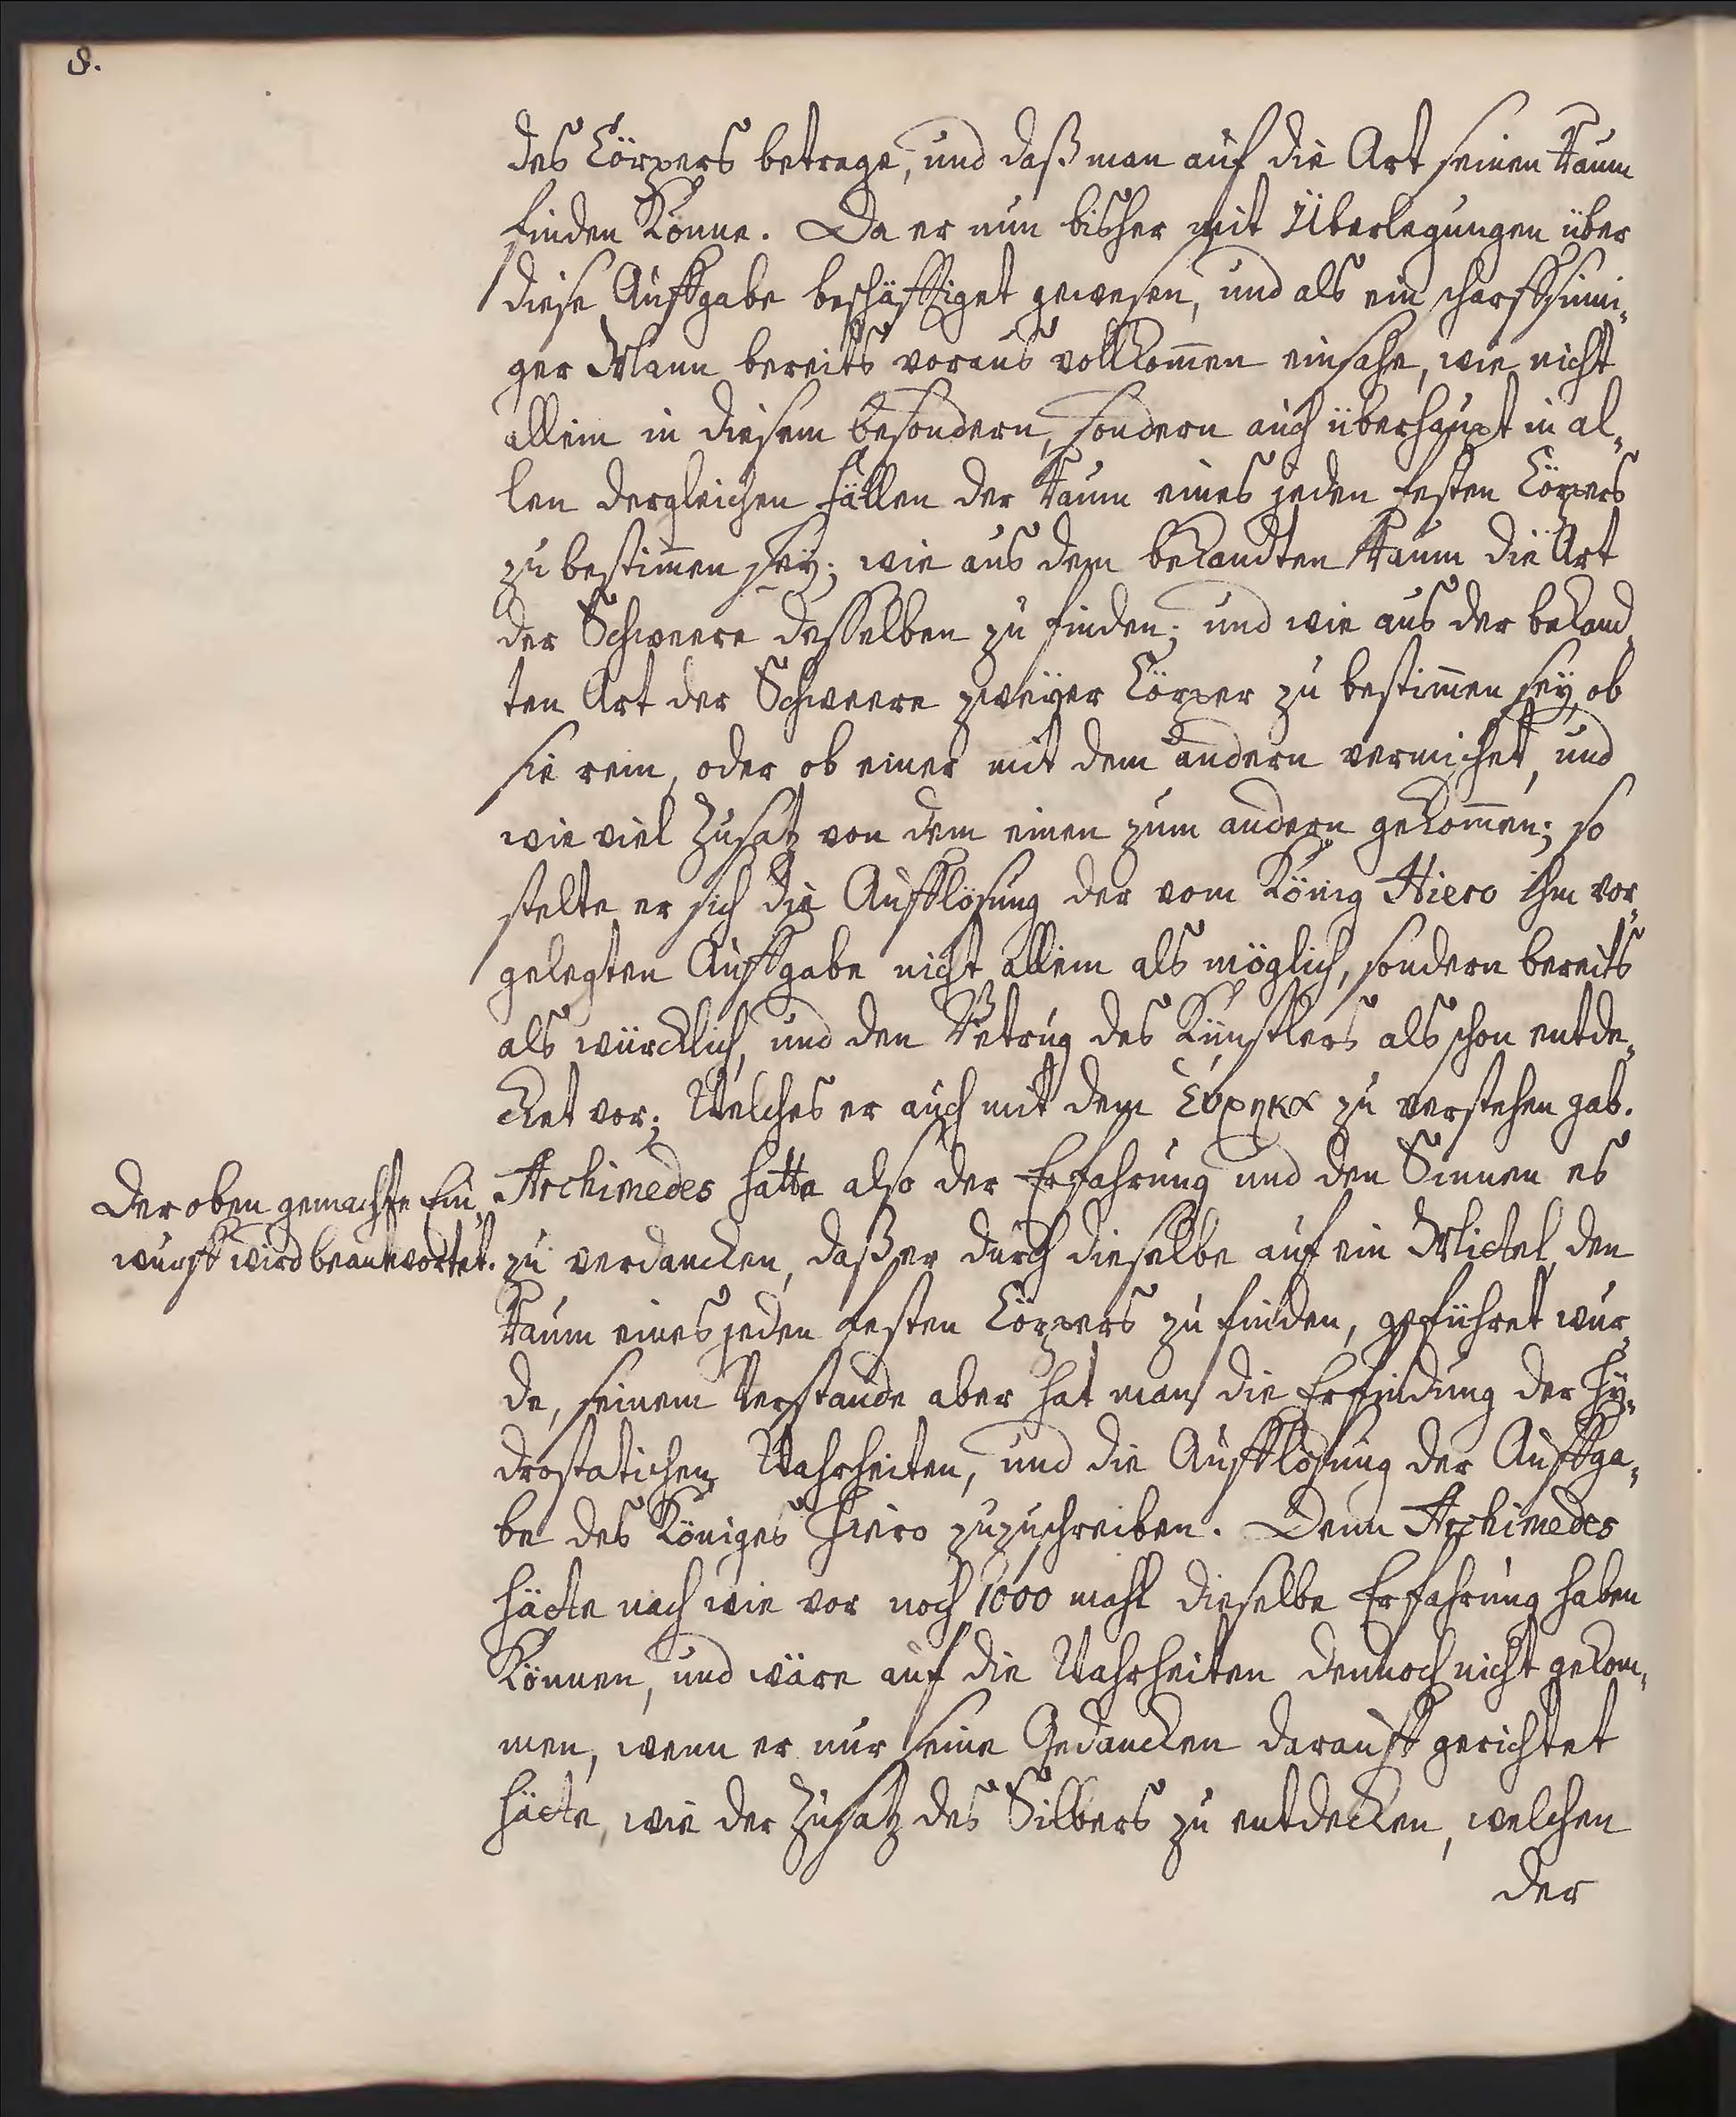 8.
des Cörpers betrage, und daß man auf die Art seinen Raum
finden Könne. Da er nun bisher mit Überlegungen über
diese Auffgabe beschäfftiget gewesen, und als ein scharffsinni-
ger Mann bereits voraus vollkom̅en einsahe, wie nicht
allein in diesem besondern, sondern auch überhaupt in al-
len dergleichen Fällen der Raum eines jeden festen Cörpers
zu bestim̅en sey; wie aus dem bekandten Raum die Art
der Schweere desselben zu finden; und wie aus der bekand-
ten Art der Schweere zweyer Cörper zu bestim̅en sey, ob
sie rein, oder ob einer mit dem andern vermichet, und
wie viel Zusatz von dem einen zum andern gekom̅en; so
stelte er sich die Aufflösung der vom König Hiero ihm vor-
gelegten Auffgabe nicht allein als möglich, sondern bereits
als würcklich, und den Betrug des Künstlers als schon entde-
cket vor; Welches er auch mit dem Ευρηκα zu verstehen gab.
Der oben gemachte Ein-
wurff wird beantwortet.
Archimedes hatte also der Erfahrung und den Sinnen es
zu verdancken, daß er durch dieselbe auf ein Mittel, den
Raum eines jeden festen Cörpers zu finden, geführet wur-
de, seinem Verstande aber hat man die Erfindung der Hy-
drostatichen Wahrheiten, und die Aufflösung der Auffga-
be des Königes Hiero zuzuschreiben. Denn Archimedes
hätte nach wie vor noch 1000 mahl dieselbe Erfahrung haben
Können, und wäre auf die Wahrheiten dennoch nicht gekom-
men, wenn er nur seine Gedancken darauff gerichtet
hätte, wie der Zusatz des Silbers zu entdecken, welchen
der